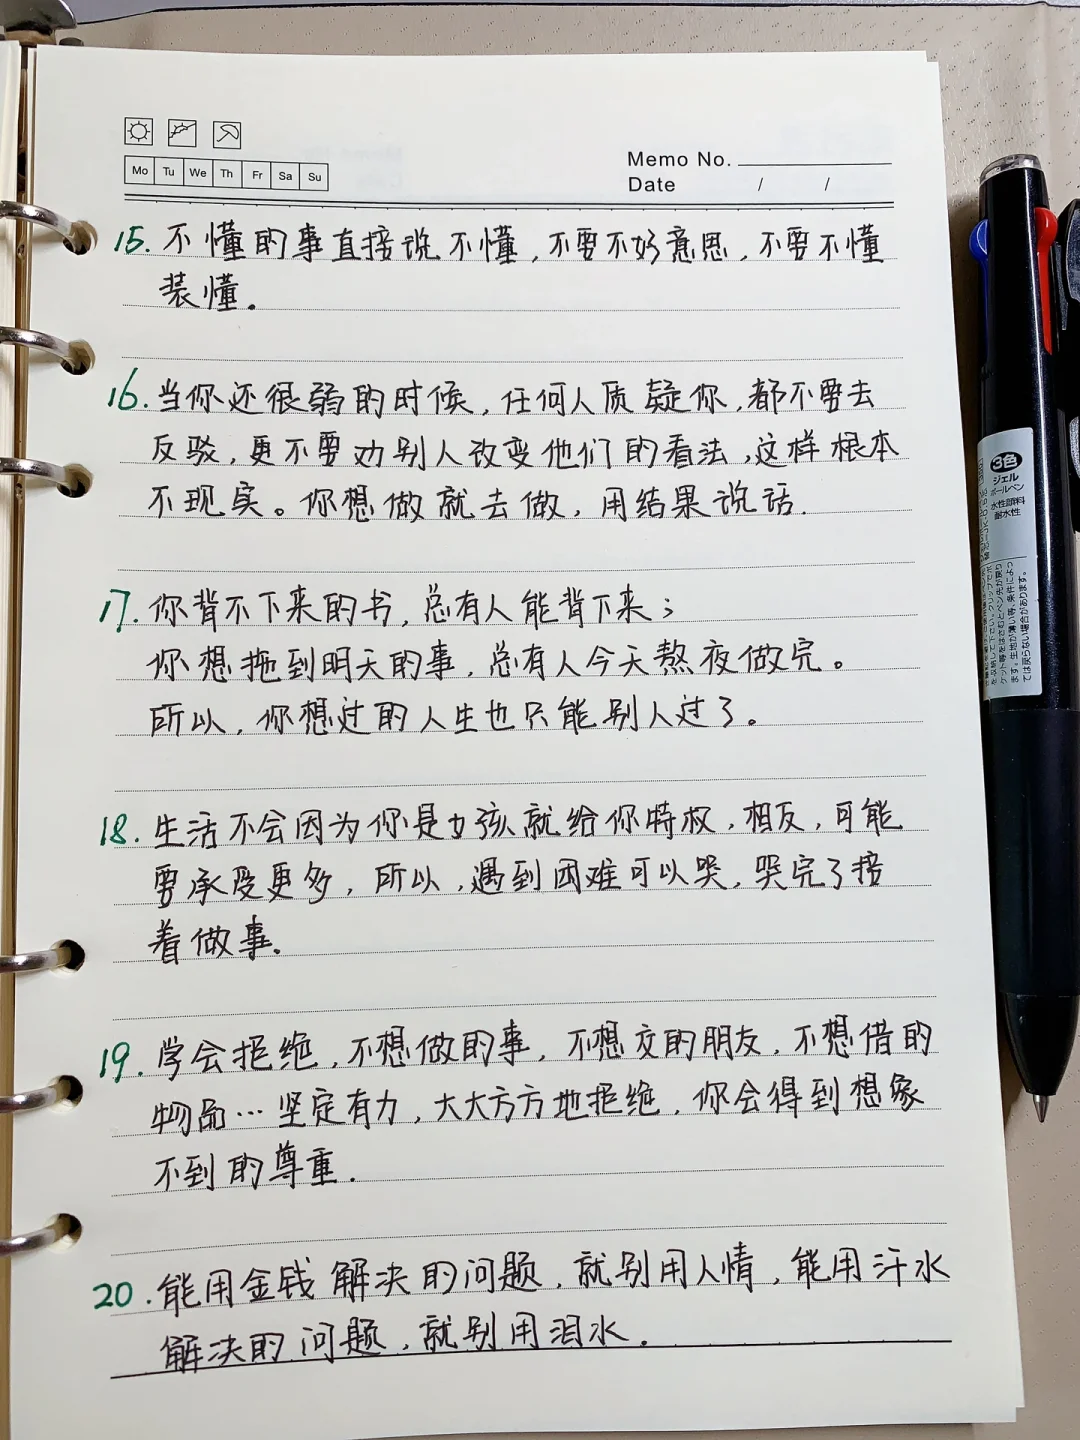 Mo Tu We Th Fr Sa Su
Memo No.
Date / /
15. 不懂的事直接说不懂，不要不好意思，不要不懂
装懂。
16. 当你还很弱的时候，任何人质疑你，都不要去
反驳，更不要劝别人改变他们的看法，这样根本
不现实。你想做就去做，用结果说话.
17. 你背不下来的书，总有人能背下来；
你想拖到明天的事，总有人今天熬夜做完。
所以，你想过的人生也只能别人过了。
18. 生活不会因为你是女孩就给你特权，相反，可能
要承受更多，所以，遇到困难可以哭，哭完了接
着做事.
19. 学会拒绝，不想做的事，不想交的朋友，不想借的
物品…坚定有力，大大方方地拒绝，你会得到想象
不到的尊重.
20. 能用金钱解决的问题，就别用人情，能用汗水
解决的问题，就别用泪水.
3色
ジェル
ボールペン
水性顔料
耐水性